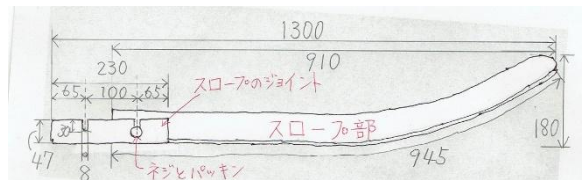 1300
910
230
65 100 65
スロープのジョイント
30
スロープ部
180
47
8
ネジとパッキン
945